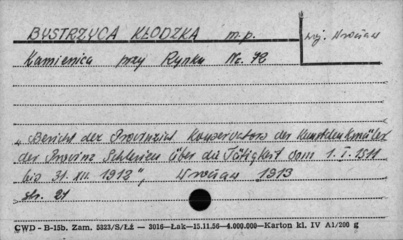 BYSTRZYCA KŁODZKA m.p.
woj. Wrocław
Kamienica przy Rynku Nr. 42
„Bericht der Provinzial Konservators der Kunstdenkmäler
der Provinz Schlesien über die Tätigkeit vom 1. I. 1911
bis 31. XII. 1912", Wrocław 1913
str. 21
CWD - B-15b. Zam. 5323/S/ŁŻ — 3016—Łak—15.11.56—4.000.000—Karton kl. IV A1/200 g